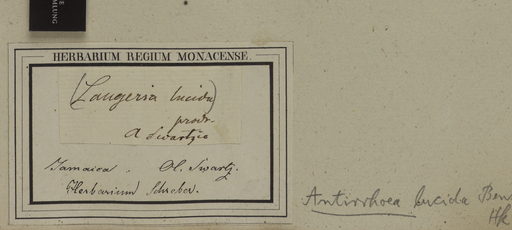 MLUNG
HERBARIUM REGIUM MONACENSE.
(Laugeria lucida)
prodr.
A Swartzio
Jamaica. Ol. Swartz.
Herbarium Schreber.
Antirrhoea lucida Ben
Hk